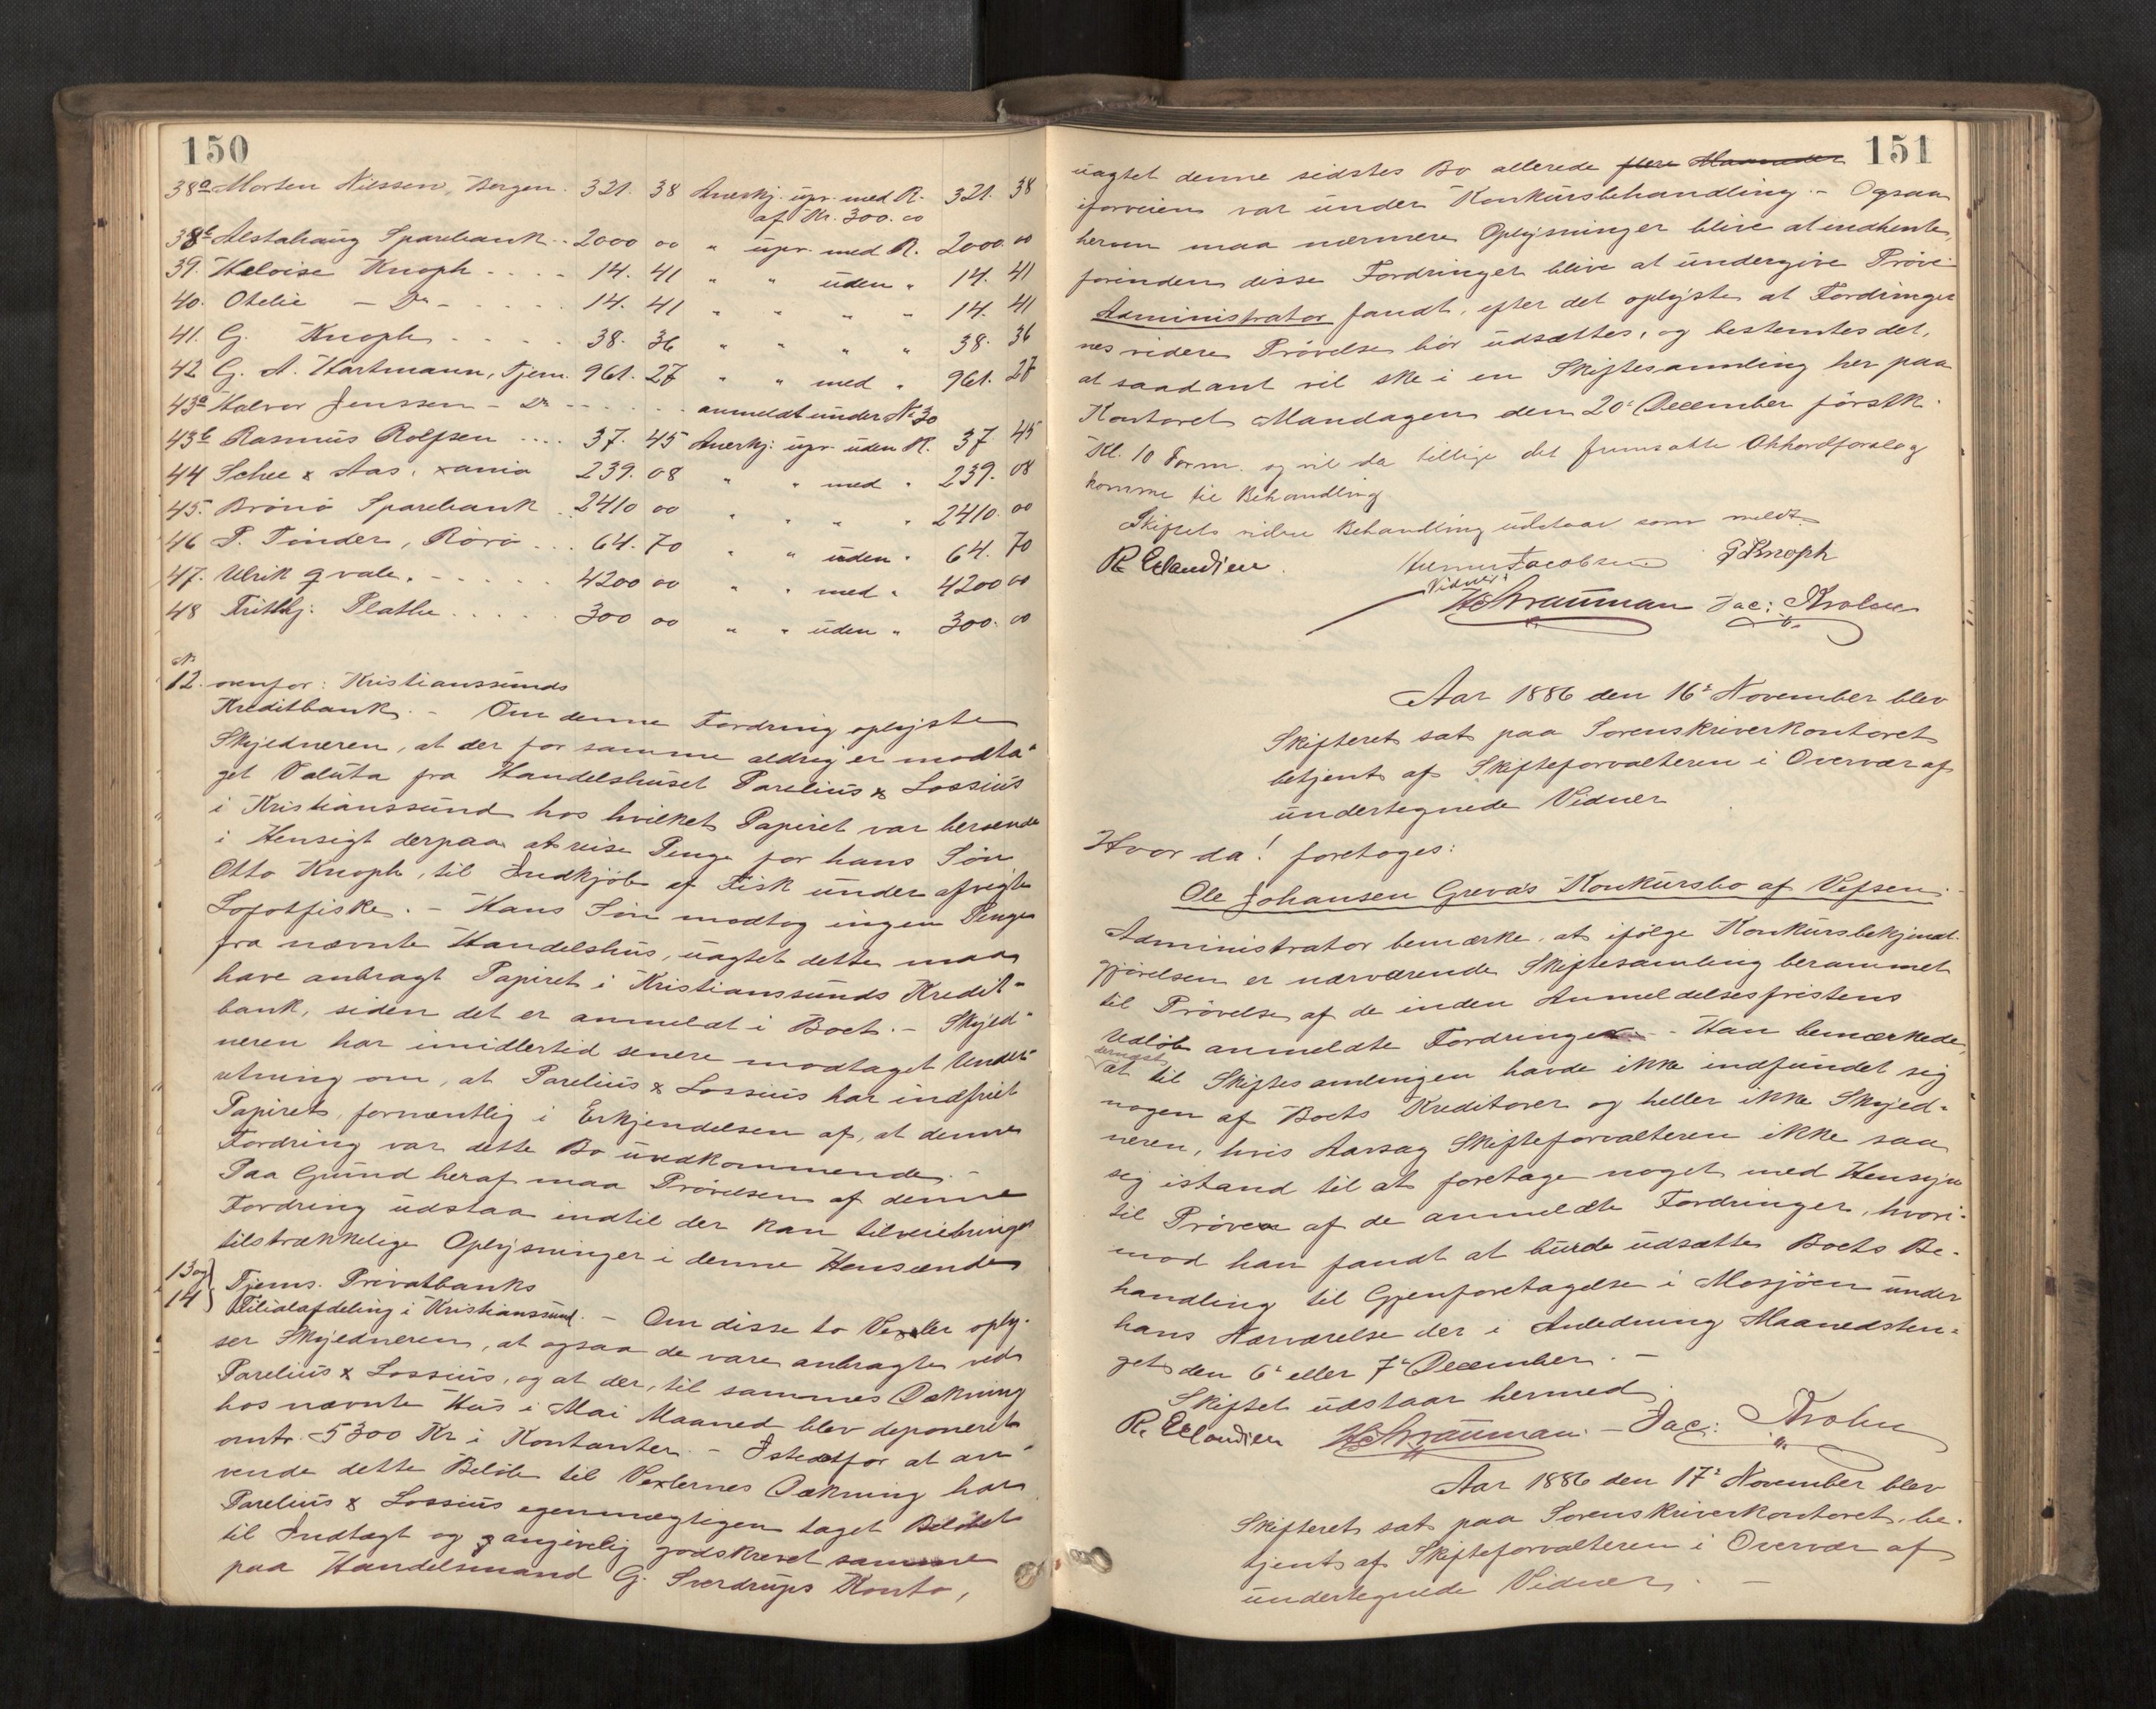 150
38a Morten Nilssen, Bergen. 321. 38 Anerkj. upr. med R. 321. 38
af Kr. 300.00
38b Alstahaug Sparebank .. 2000 00 " upr. med R. 2000. 00
39. Heloise Knoph .... 14. 41 " " uden " 14. 41
40. Otelie — Do — .... 14. 41 " " " " 14. 41
41. G. Knoph ..... 38. 36 " " " " 38. 36
42 G. A. Hartmann, Tjem. 961. 27 " " med " 961. 27
43a Halvor Jenssen — Do ..... anmeldt under No 30
43b Rasmus Rolfsen .... 37. 45 Anerkj: upr. uden R. 37 45
44 Schee & Aas, Xania 239. 08 " " med " 239. 08
45. Brönö Sparebank . 2410 00 " " " " 2410. 00
46 P. Tönder, Rörö ... 64. 70 " " uden " 64. 70
47. Ulrik Qvale. ..... 4200 00 " " med " 4200 00
48 Frithj: Plathe ..... 300 00 " " uden " 300. 00
No
12. ovenfor: Kristianssunds
Kreditbank. — Om denne Fordring oplyste
Skyldneren, at der for samme aldrig er modta-
get Valuta fra Handelshuset Parelius & Lossius
i Kristianssund hos hvilket Papiret var beroende
i Hensigt derpaa at reise Penge for hans Sön
Otto Knoph, til Indkjöb af Fisk under afvigte
Lofotfiske. — Hans Sön modtog ingen Penge
fra nævnte Handelshus, uagtet dette maa
have anbragt Papiret i Kristianssunds Kredit-
bank, siden det er anmeldt i Boet. — Skyld-
neren har imidlertid senere modtaget Under-
retning om, at Parelius & Lossius har indfriet
Papiret, formentlig i Erkjendelsen af, at denne
Fordring var dette Bo uvedkommende. —
Paa Grund heraf maa Prövelsen af denne
Fordring udstaa indtil der kan tilveiebringes
tilstrækkelige Oplysninger i denne Henseende
13 og
14 } Tjems. Privatbanks
Filialafdeling i Kristianssund. — Om disse to Vexler oply-
ser Skyldneren, at ogsaa de vare anbragte ved
Parelius & Lossius, og at der, til sammes Dækning
hos nævnte Hus i Mai Maaned blev deponeret
omtr. 5300 Kr i Kontanter. — Istedetfor at an-
vende dette Belöb til Vexlernes Dækning har
Parelius & Lossius egenmægtigen taget Belöbet
til Indtægt og angivelig godskrevet samme
paa Handelsmand G. Sverdrups Konto,
151
uagtet denne sidstes Bo allerede flere Maaneder
iforveien var under Konkursbehandling. — Ogsaa
herom maa nærmere Oplysninger blive at indhente,
forinden disse Fordringer blive at undergive Pröve.
Administrator fandt, efter det oplyste at Fordringer
nes videre Prövelse bör udsættes, og bestemtes det,
at saadant vil ske i en Skiftesamling her paa
Kontoret Mandagen den 20de December förstk.
Kl. 10 Form. og vil da tillige det fremsatte Akkordforslag
komme til Behandling
Skiftets videre Behandling udstaar som meldt.
R. Elaudien. Jacobsen G Knoph
Vidner:
HSchrauman Jac: Krohn
Aar 1886 den 16de November blev
Skifteret sat paa Sorenskriverkontoret
betjent af Skifteforvalteren i Overvær af
undertegnede Vidner
Hvor da! foretoges:
Ole Johansen Grevas Konkursbo af Vefsen.
Administrator bemærke, at ifölge Konkursbekjendt-
gjörelsen er nærværende Skiftesamling berammet
til Prövelse af de inden Anmeldelsesfristens
Udlöb anmeldte Fordringer — Han bemærkede,
dernæst
at til Skiftesamlingen havde ikke indfundet sig
nogen af Boets Kreditorer og heller ikke Skyld-
neren, hvis Aarsag Skifteforvalteren ikke saa
sig istand til at foretage noget med Hensyn
til Pröven af de anmeldte Fordringer, hvori-
mod han fandt at burde udsætte Boets Be-
handling til Gjenforetagelse i Mosjöen under
hans Nærværelse der i Anledning Maanedsthin-
get den 6te eller 7de December. —
Skiftet udstaar hermed
R. Elaudien HSchrauman. — Jac: Krohn
Aar 1886 den 17de November blev
Skifteret sat paa Sorenskriverkontoret, be-
tjent af Skifteforvalteren i Overvær af
undertegnede Vidner. —